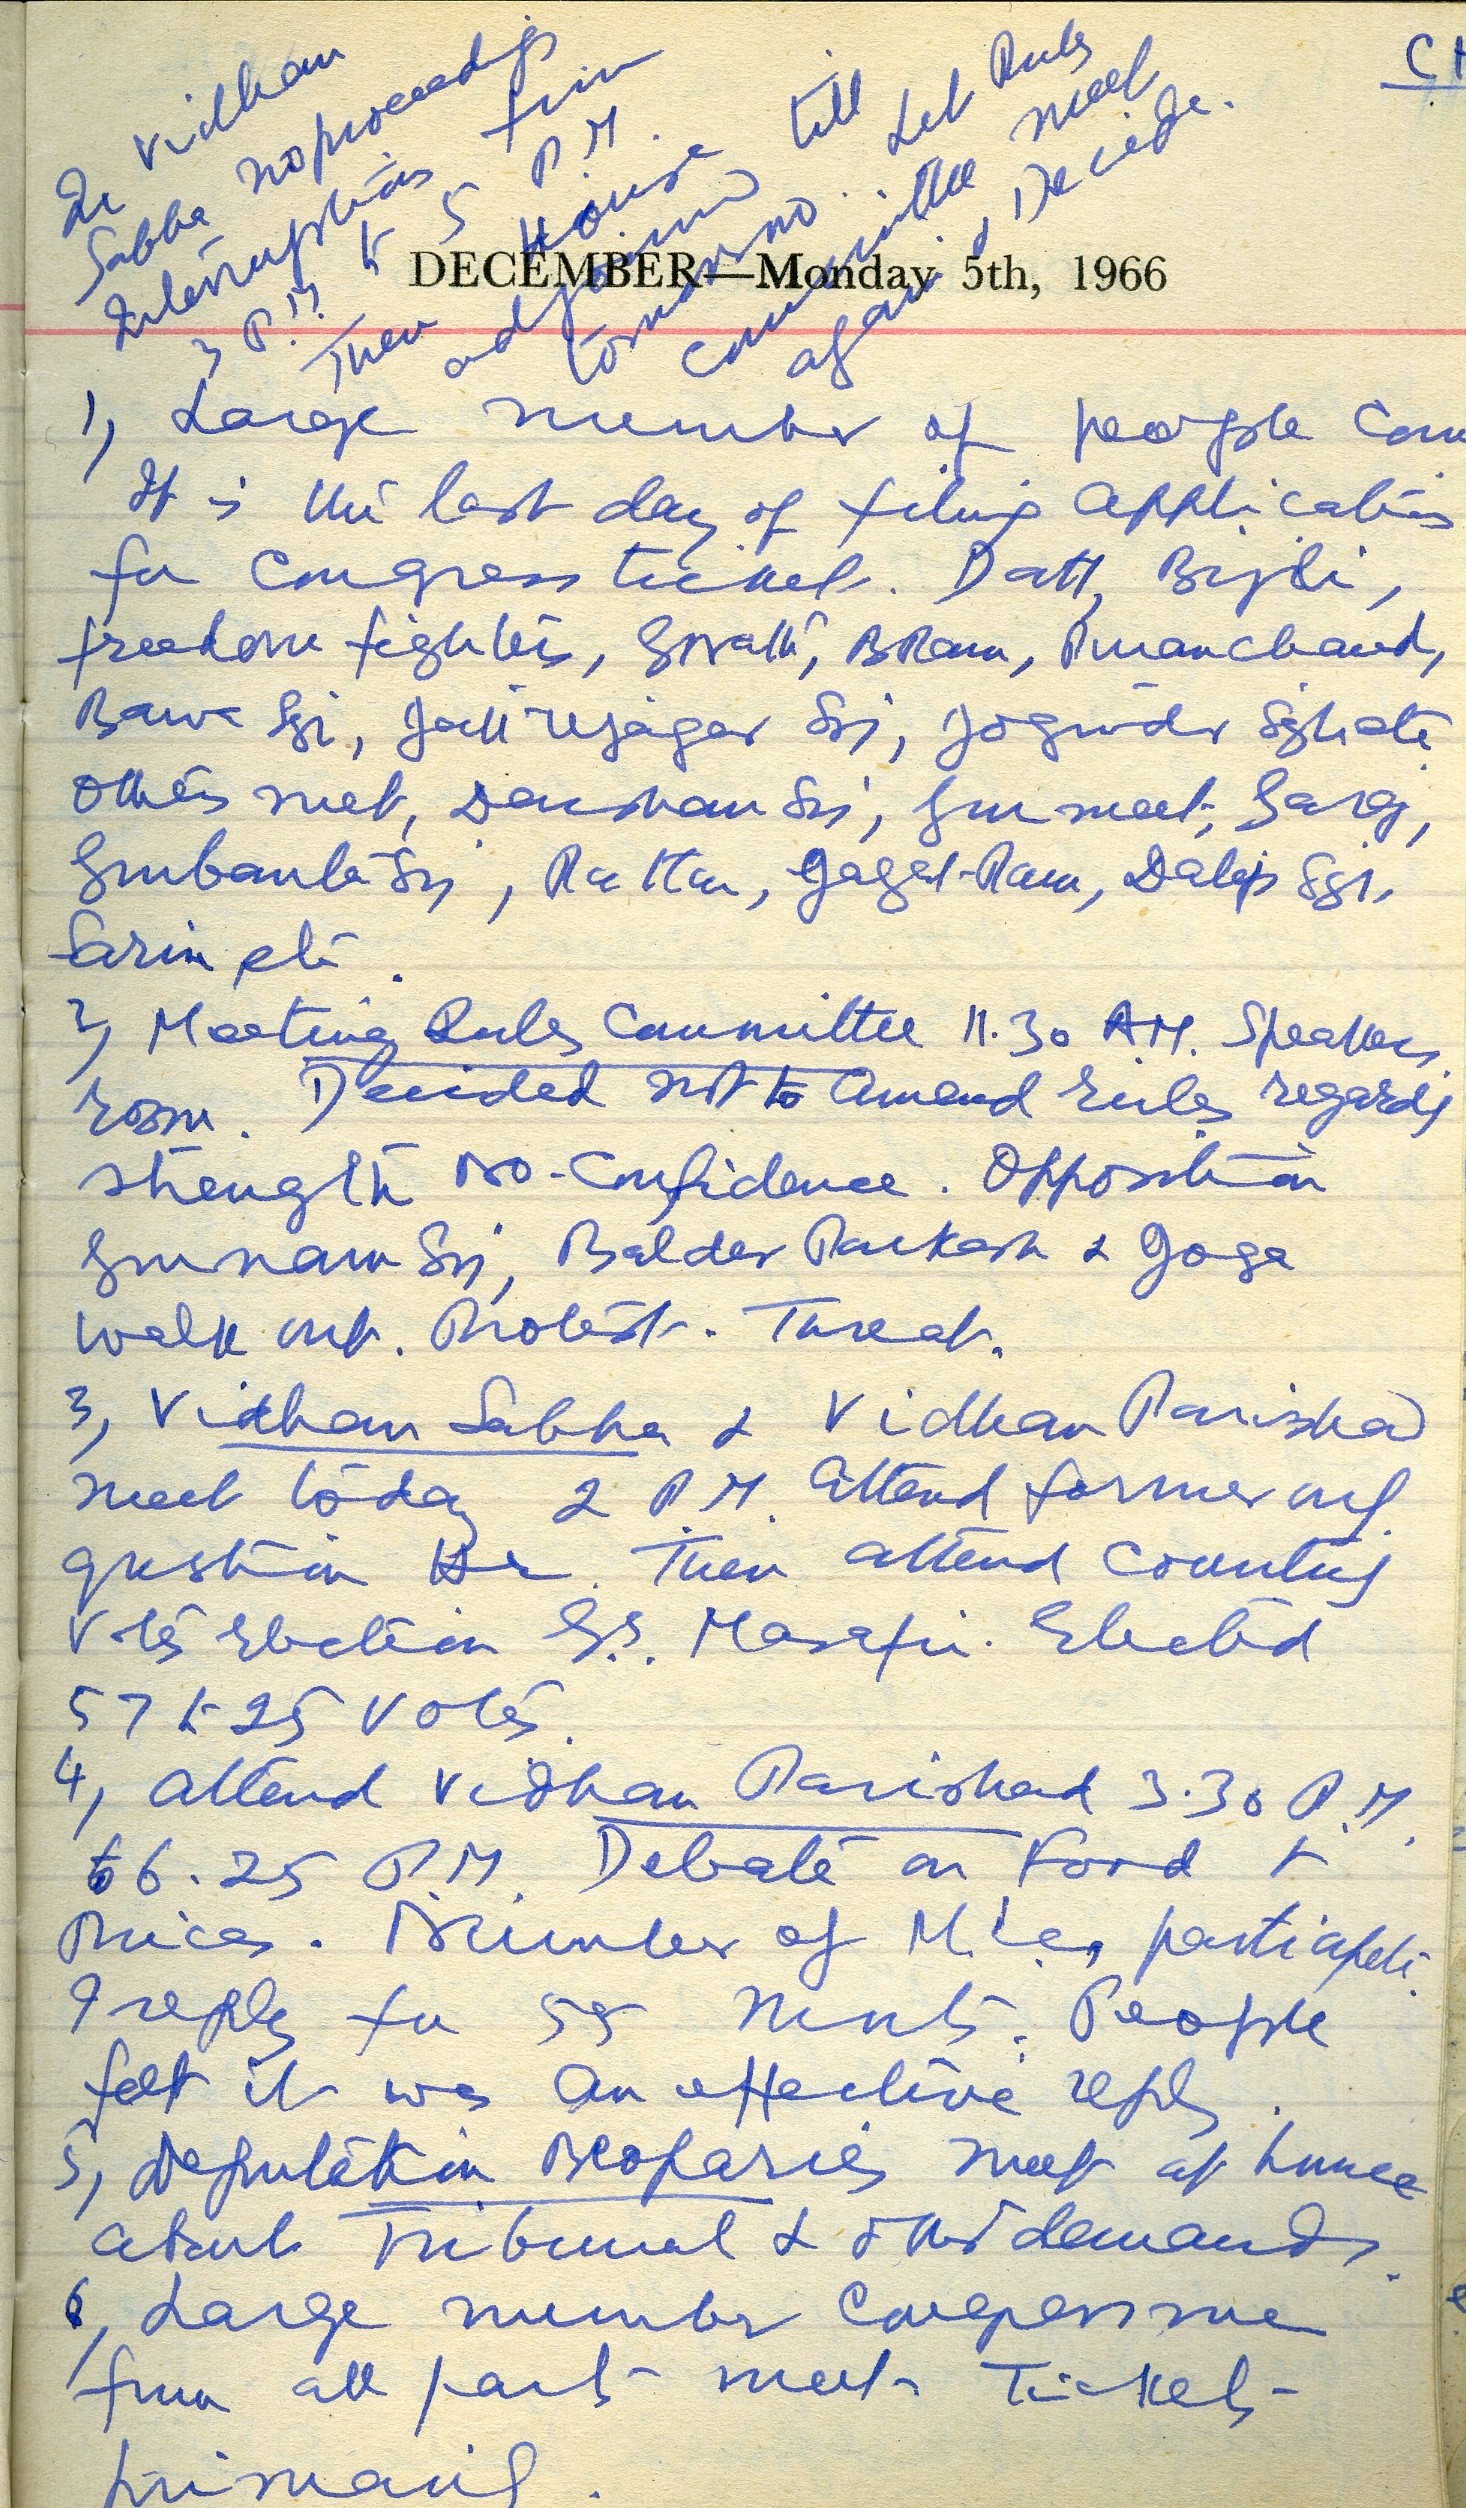 CH
In Vidhan
Sabha no proceedings
Interruptions from
3 P.M to 5 P.M.
Then House
adjourned till
tomorrow. Let Rules
committee meet
again & Decide.
DECEMBER—Monday 5th, 1966
1, Large number of people Come
It is the last day of filing applications
for Congress tickets. Datt, Bijli,
freedom fighters, B Ram, Puranchand,
Bawa Sgi, Sgi, Joginder Sgh etc
others met, Darshan Sgi, Gurmeet, Garg,
Gurbanta Sgi, Rattan, Jagat Ram, Dalip Sgi,
Sarin etc.
2, Meeting Rules Committee 11.30 AM. Speakers
room. Decided not to amend rules regardg
strength No-Confidence. Opposition
Gurnam Sgi, Baldev Parkash & Joga
walk out. Protest. Threat.
3, Vidhan Sabha & Vidhan Parishad
meet today 2 P.M. attend former only
question Hr. Then attend counting
Votes Election G.S. Musafir. Elected
57 to 25 Votes.
4, attend Vidhan Parishad 3.30 P.M.
to 6.25 P.M. Debate on Food &
Prices. Number of M.L.Cs participate.
I reply for 55 minuts. People
felt it was an effective reply.
5, Deputation Beoparies meet at house
about Tribunal & other demands.
6, Large number Congressmen
from all parts meet. Tickets
primarily.